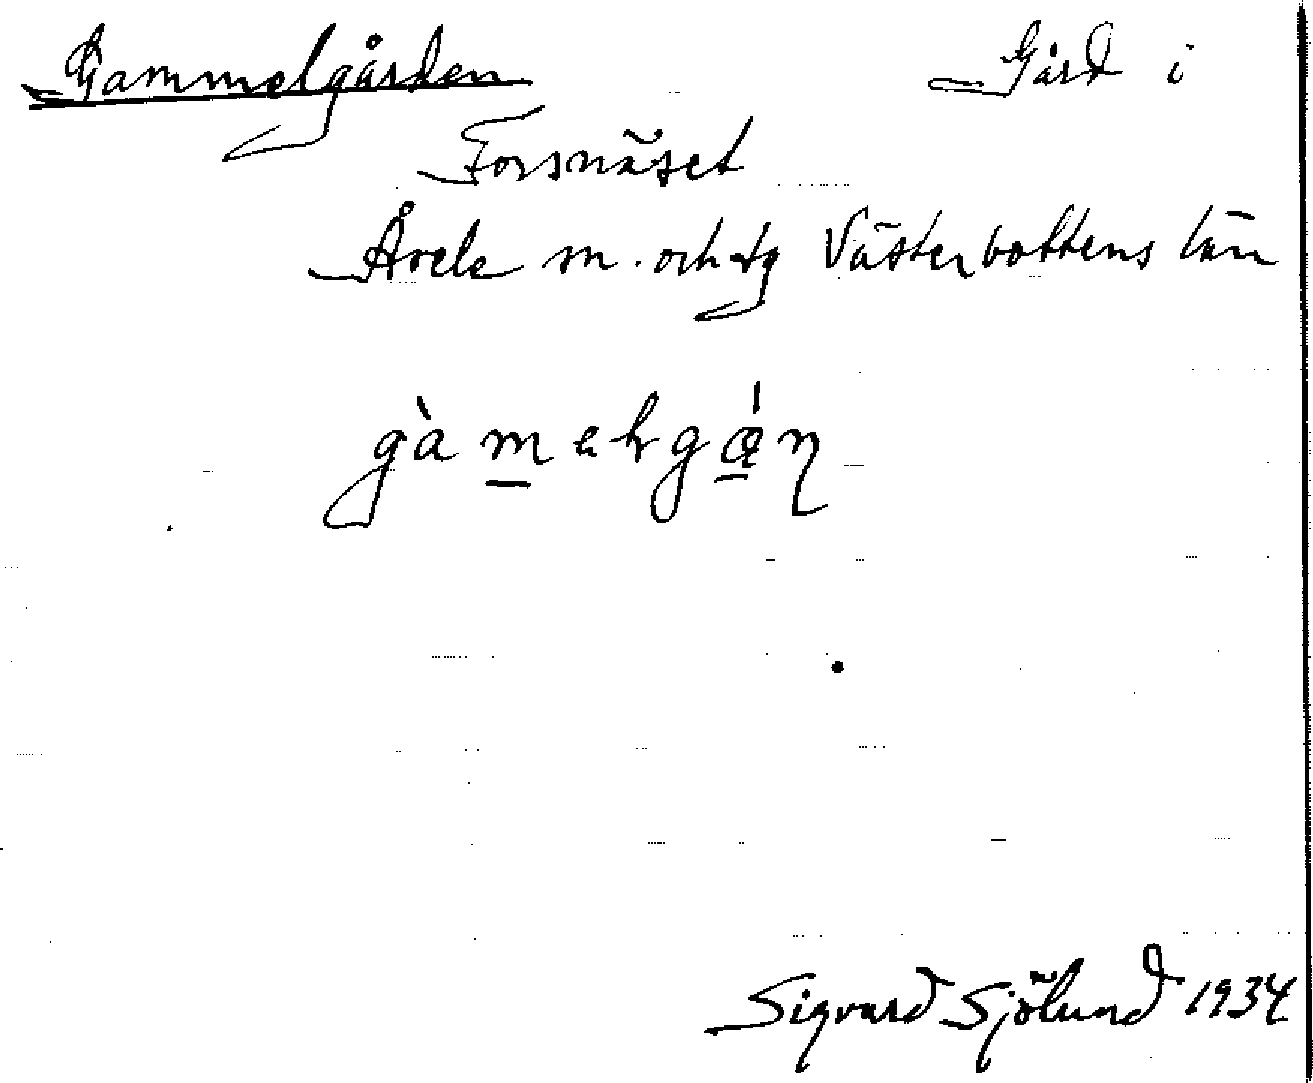 Gammelgården Gård i
Forsnäset
Åsele sn. och tg Västerbottens län
Sigvard Sjölund 1934